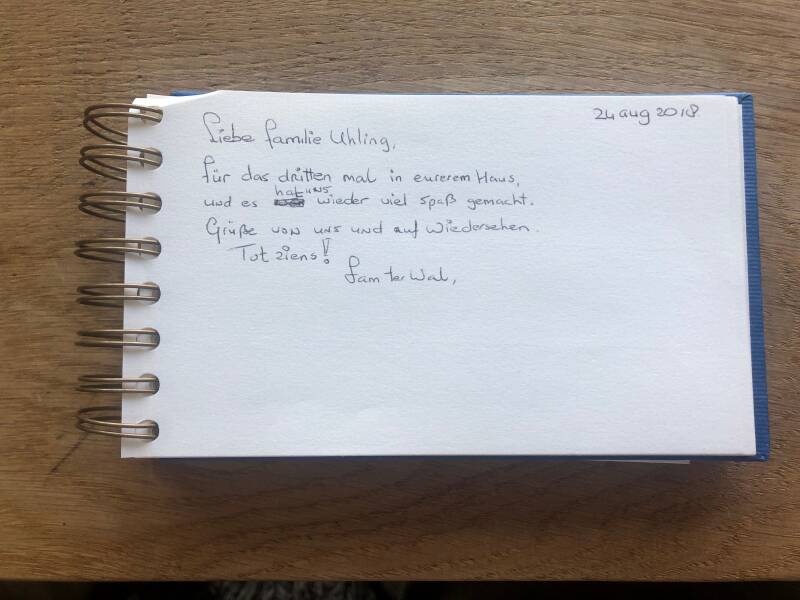 24 aug 2018
Liebe familie Uhling,
für das dritten mal in eurerem Haus,
und es hat uns wieder viel spaß gemacht.
Grüße von uns und auf wiedersehen.
Tot ziens!
fam ter Wal,